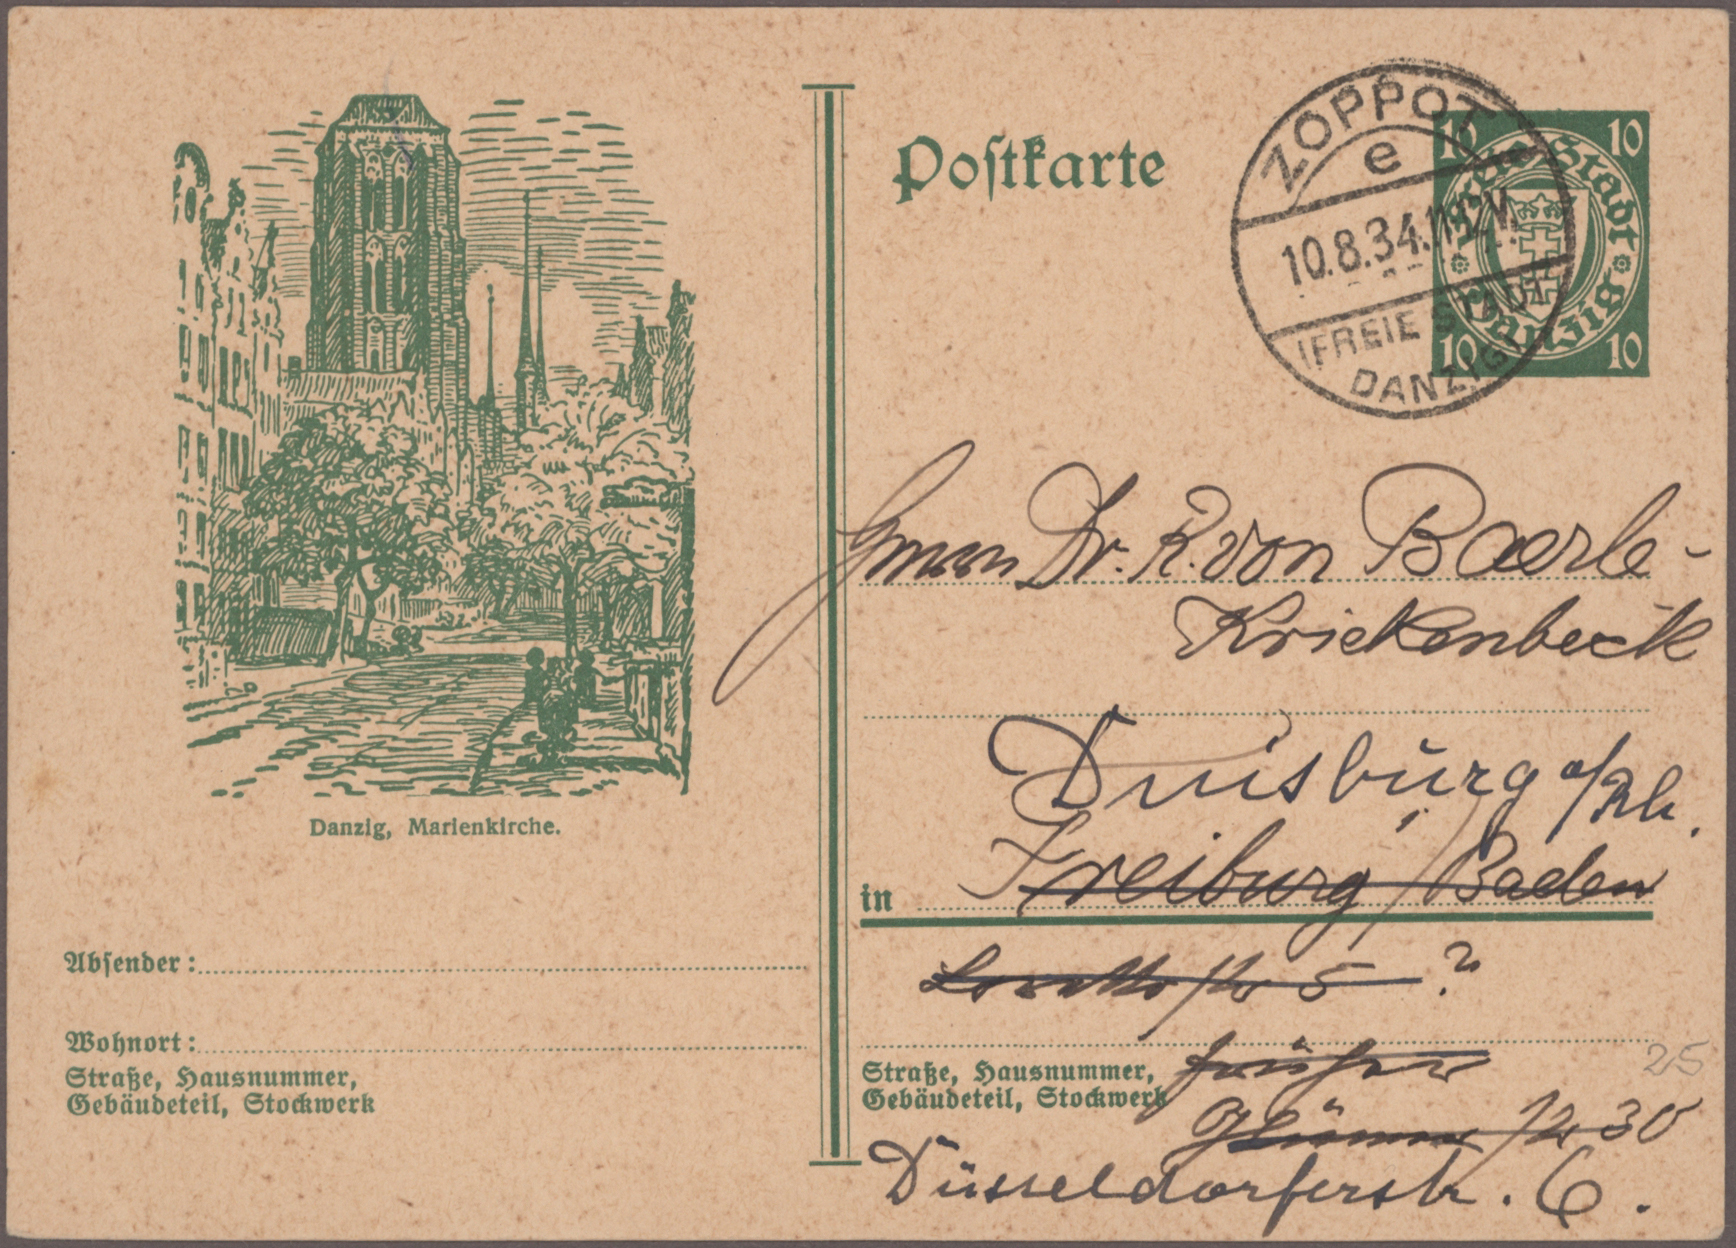 Postkarte
ZOPPOT
e
10.8.34.11-12V.
(FREIE STADT
DANZIG)
10 10
Freie Stadt
Danzig
10 10
Danzig, Marienkirche.
Herrn Dr. R. von Baerle-
Krickenbeck
Duisburg a/Rh.
in Freiburg / Baden
Lorettostr 5 ?
früher
str 30
Düsseldorferstr. 6.
25
Absender:
Wohnort:
Straße, Hausnummer,
Gebäudeteil, Stockwerk
Straße, Hausnummer,
Gebäudeteil, Stockwerk